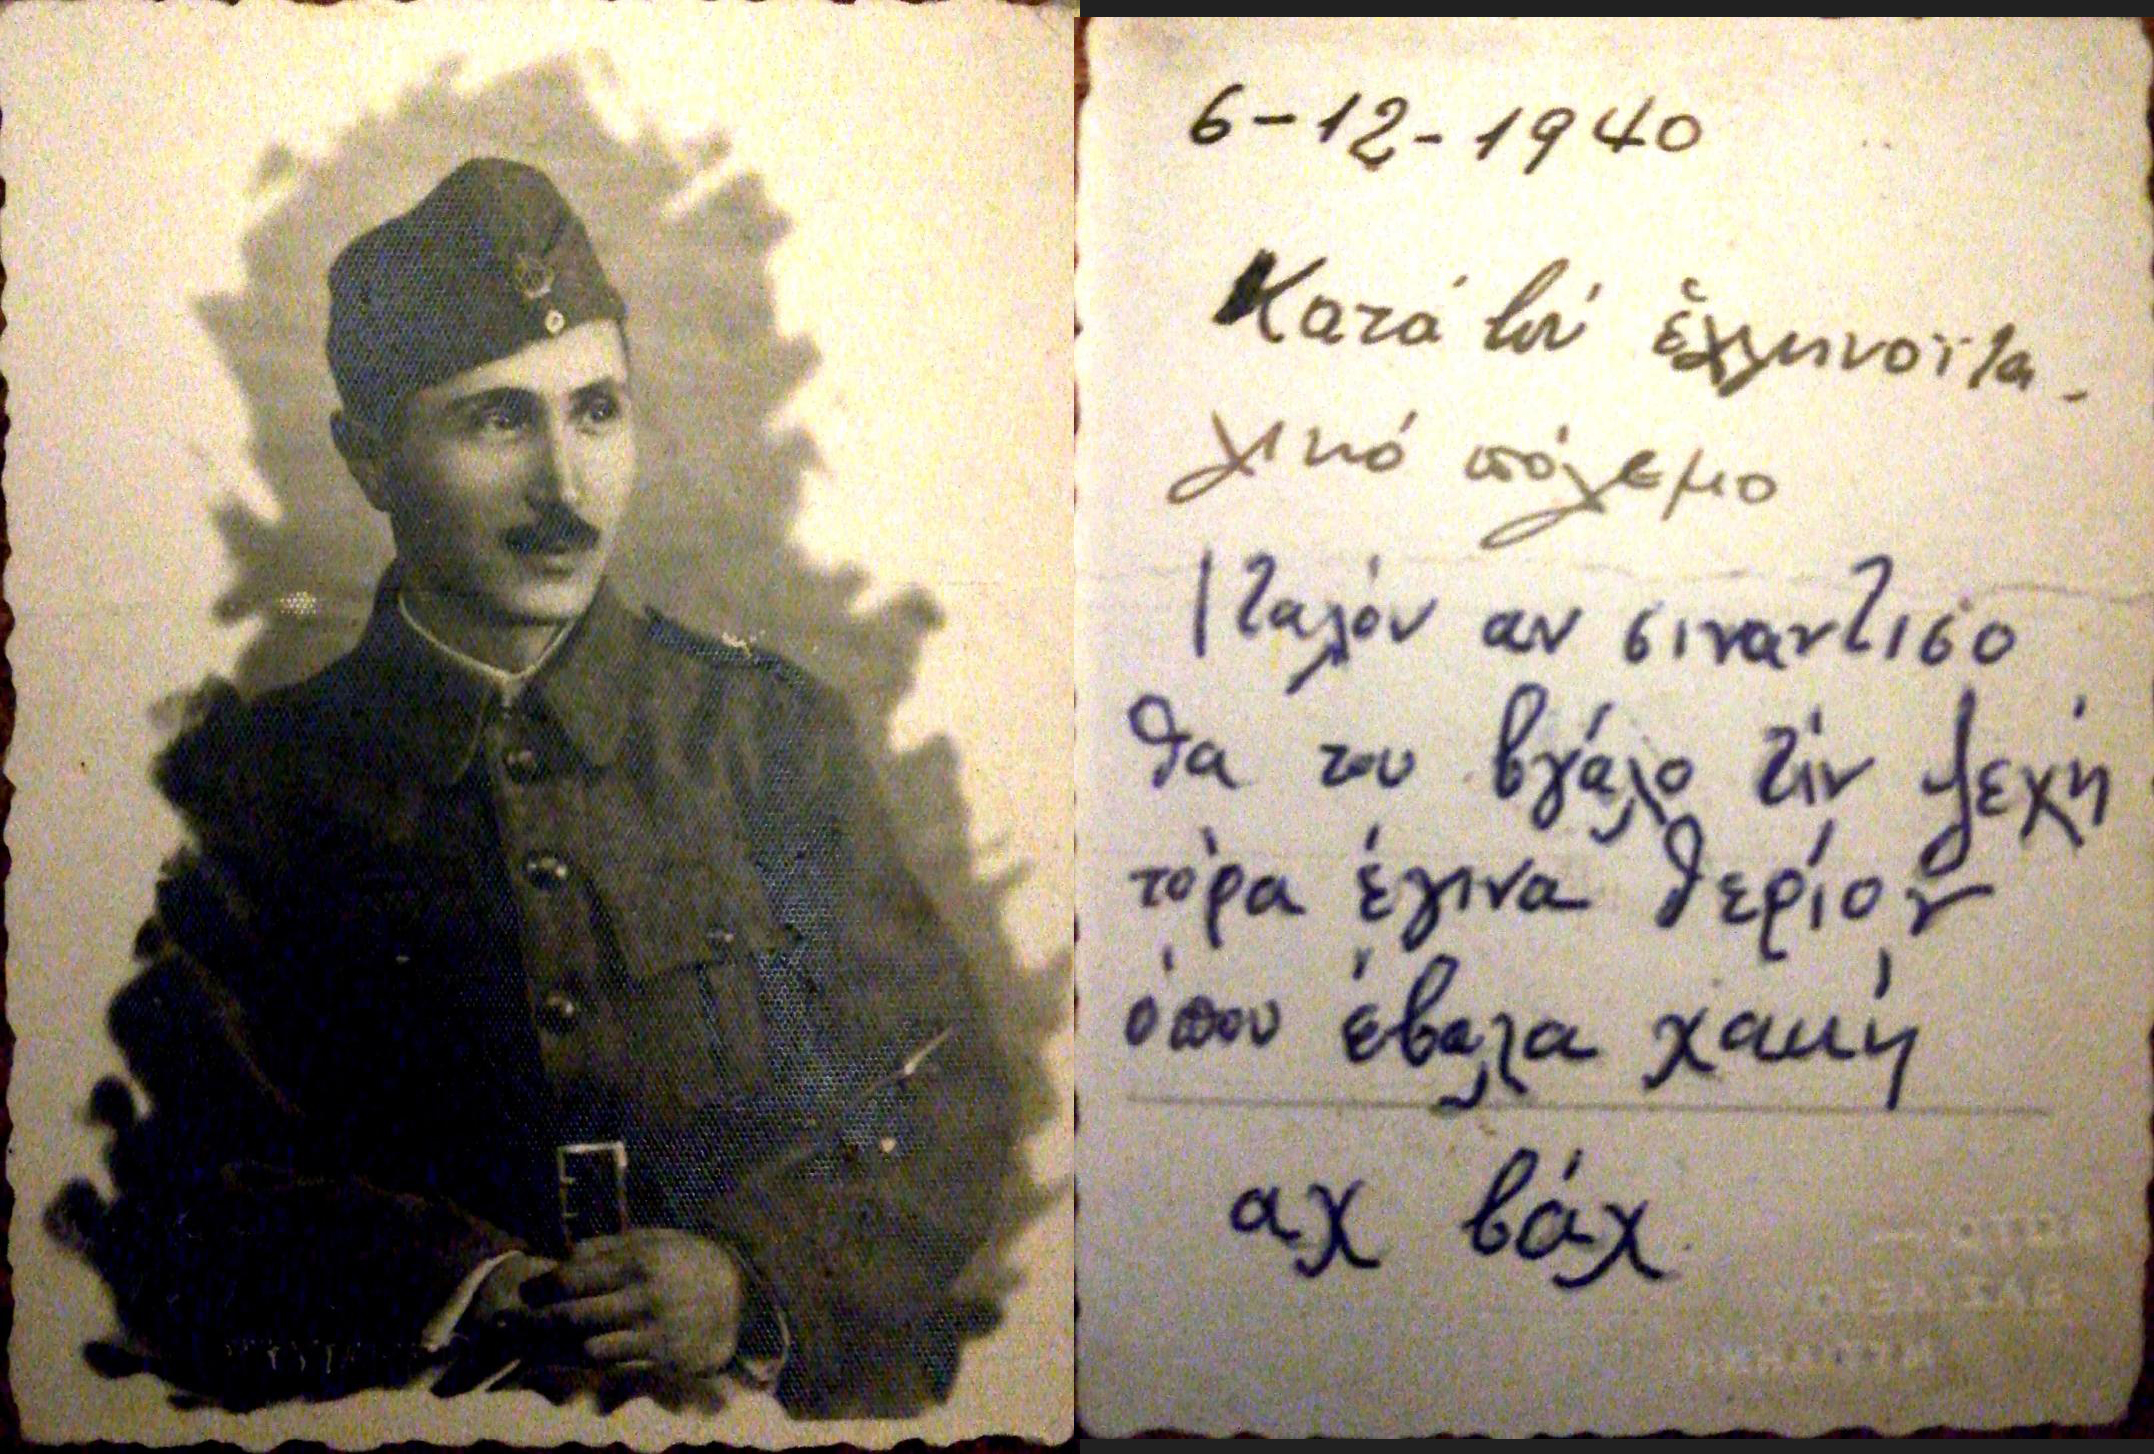 6-12-1940
Κατά τον έλληνοϊτα-
λικό πόλεμο
Ιταλόν αν σιναντισο
θα του βγάλο τίν ψεχή
τόρα έγινα θερίον
όπου έβαλα χακή
αχ βάχ